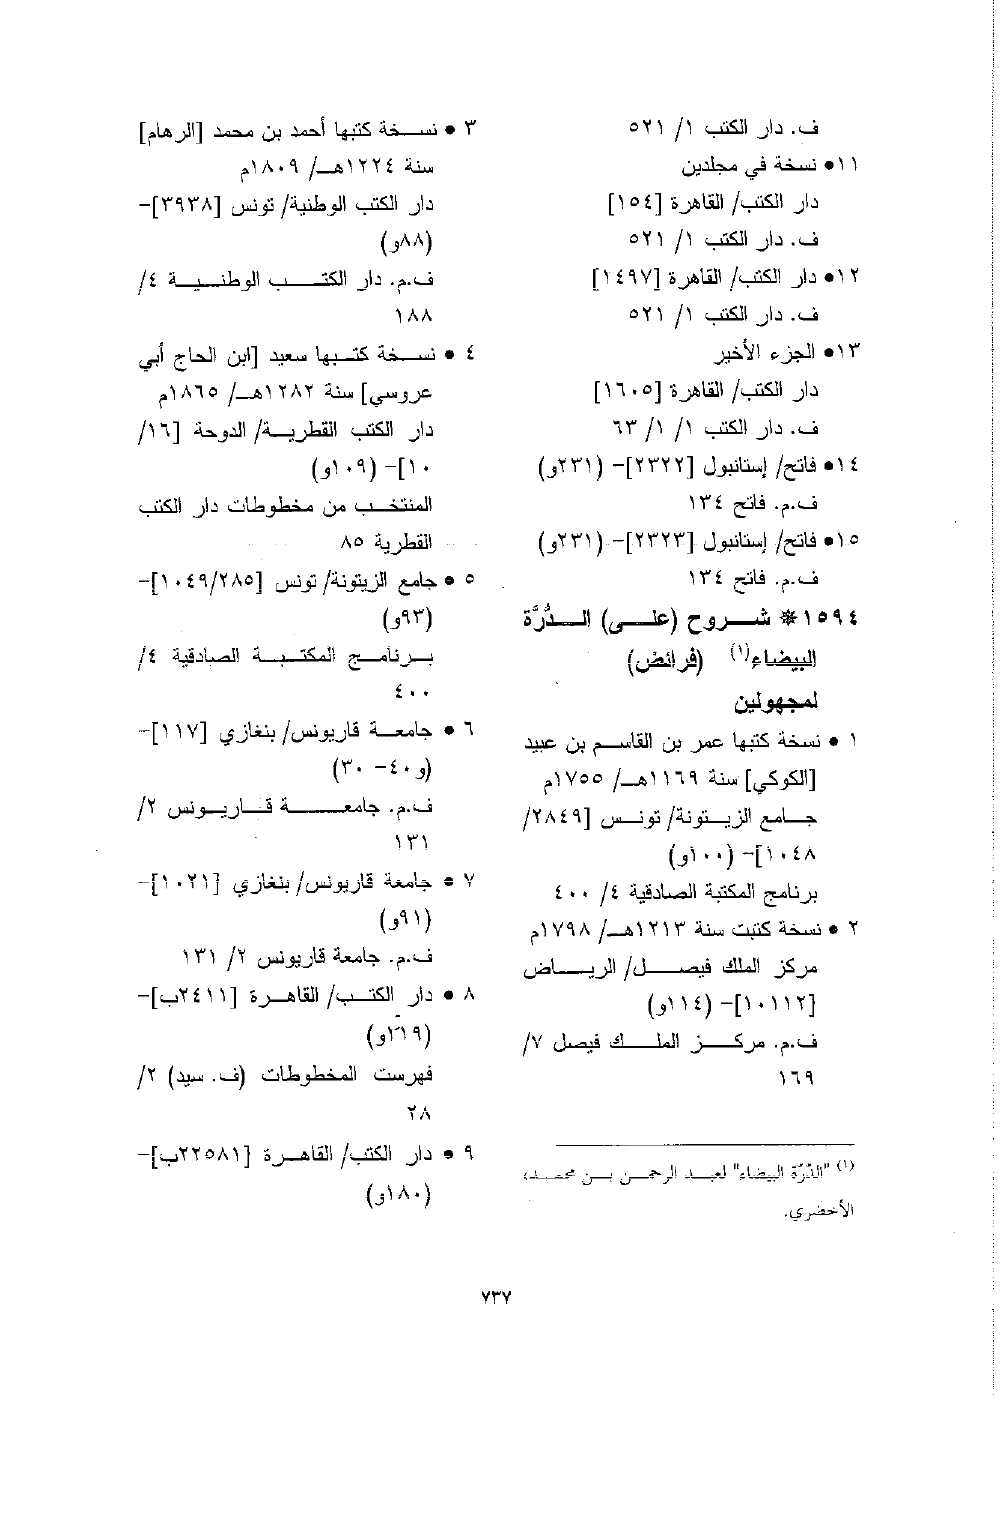 ف. دار الكتب ١/ ٥٢١
١١• نسخة في مجلدين
دار الكتب/ القاهرة [١٥٤]
ف. دار الكتب ١/ ٥٢١
١٢• دار الكتب/ القاهرة [١٤٩٧]
ف. دار الكتب ١/ ٥٢١
١٣• الجزء الأخير
دار الكتب/ القاهرة [١٦٠٥]
ف. دار الكتب ١/ ١/ ٦٣
١٤• فاتح/ إستانبول [٢٣٢٢]- (٢٣١و)
ف.م. فاتح ١٣٤
١٥• فاتح/ إستانبول [٢٣٢٣]- (٢٣١و)
ف.م. فاتح ١٣٤
١٥٩٤* شروح (على) الدُّرَّة
البيضاء(١) (فرائض)
لمجهولين
١ • نسخة كتبها عمر بن القاسم بن عبيد
[الكوكي] سنة ١١٦٩هـ/ ١٧٥٥م
جامع الزيتونة/ تونس [٢٨٤٩/
١٠٤٨]- (١٠٠و)
برنامج المكتبة الصادقية ٤/ ٤٠٠
٢ • نسخة كتبت سنة ١٢١٣هـ/ ١٧٩٨م
مركز الملك فيصل/ الرياض
[١٠١١٢]- (١١٤و)
ف.م. مركز الملك فيصل ٧/
١٦٩
(١) "الدّرّة البيضاء" لعبد الرحمن بن محمد،
الأخضري.
٣ • نسخة كتبها أحمد بن محمد [الرهام]
سنة ١٢٢٤هـ/ ١٨٠٩م
دار الكتب الوطنية/ تونس [٣٩٣٨]-
(٨٨و)
ف.م. دار الكتب الوطنية ٤/
١٨٨
٤ • نسخة كتبها سعيد [ابن الحاج أبي
عروسي] سنة ١٢٨٢هـ/ ١٨٦٥م
دار الكتب القطرية/ الدوحة [١٦/
١٠]- (١٠٩و)
المنتخب من مخطوطات دار الكتب
القطرية ٨٥
٥ • جامع الزيتونة/ تونس [١٠٤٩/٢٨٥]-
(٩٣و)
برنامج المكتبة الصادقية ٤/
٤٠٠
٦ • جامعة قاريونس/ بنغازي [١١٧]-
(و٤٠- ٣٠)
ف.م. جامعة قاريونس ٢/
١٣١
٧ • جامعة قاريونس/ بنغازي [١٠٢١]-
(٩١و)
ف.م. جامعة قاريونس ٢/ ١٣١
٨ • دار الكتب/ القاهرة [٢٤١١ب]-
(١٦٩و)
فهرست المخطوطات (ف. سيد) ٢/
٢٨
٩ • دار الكتب/ القاهرة [٢٢٥٨١ب]-
(١٨٠و)
٧٣٧